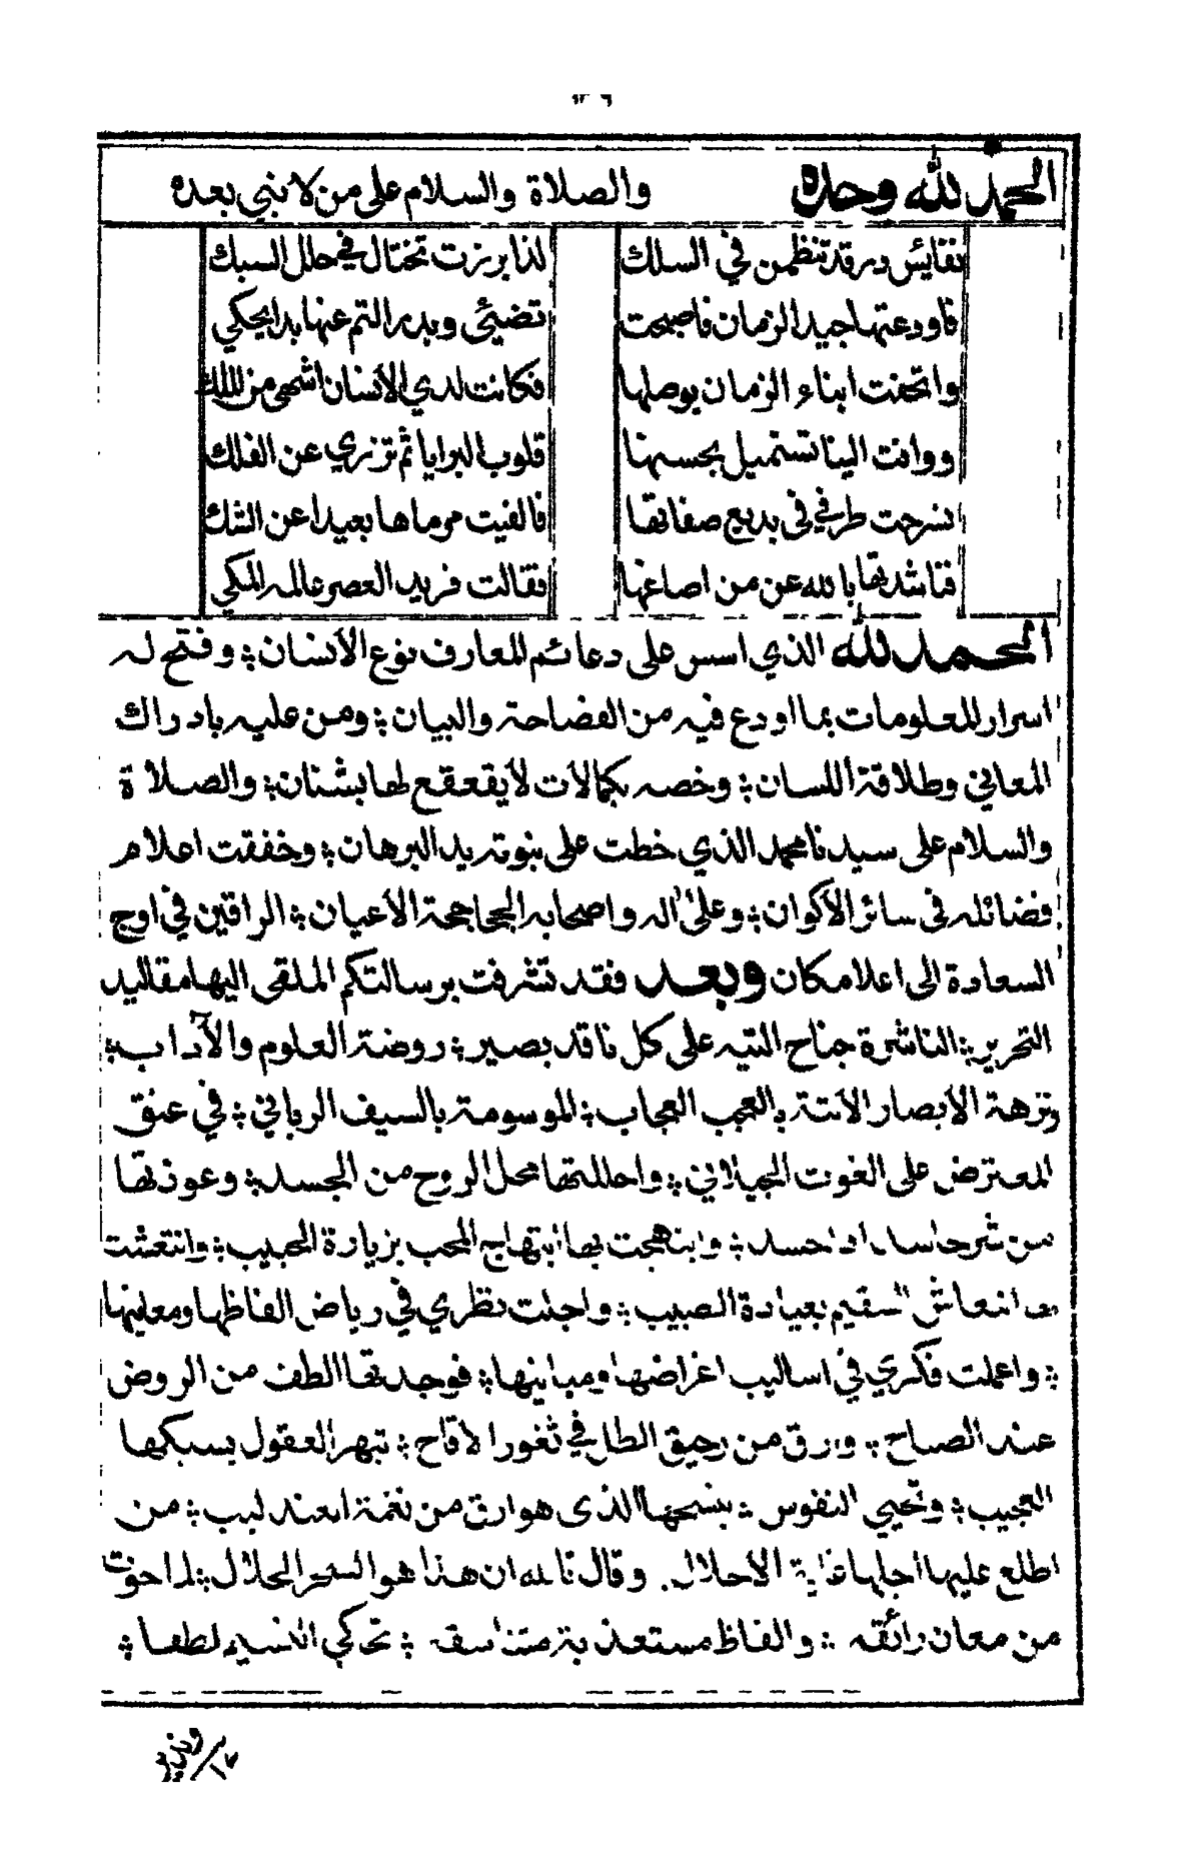 ١٣٦
الحمد لله وحده والصلاة والسلام على من لا نبي بعده
نفايس در قد تنظمن في السلك لذا برزت تختال في حلل السبك
فاودعتها جيد الزمان فاصبحت تضيئ وبدر التم عنها بدا يحكي
واتحفت ابناء الزمان بوصلها فكانت لدي الانسان اشهى من الملك
ووافت الينا تستميل بحسنها قلوب البرايا ثم تزري عن الفلك
فسرحت طرفي في بديع صفاتها فالفيت مرماها بعيدا عن الشك
فناشدتها بالله عن من اصاغها فقالت فريد العصر عالمه المكي
الحمد لله الذي اسس على دعائم المعارف نوع الانسان ؛ وفتح له
اسرار المعلومات بما اودع فيه من الفصاحة والبيان ؛ ومن عليه بادراك
المعاني وطلاقة اللسان ؛ وخصه بكمالات لا يقعقع لها بشنان ؛ والصلاة
والسلام على سيدنا محمد الذي خطت على نبوته يد البرهان ؛ وخفقت اعلام
فضائله في سائر الاكوان ؛ وعلى اله واصحابه الججاجحة الاعيان ؛ الراقين في اوج
السعادة الى اعلا مكان وبعد فقد تشرفت برسالتكم الملقى اليها مقاليد
التحرير ؛ الناشرة جناح التيه على كل ناقد بصير ؛ روضة العلوم والآداب ؛
ونزهة الابصار الاتتة بالعجب العجاب ؛ الموسومة بالسيف الرباني ؛ في عنق
المعترض على الغوث الجيلاني ؛ واحللتها محل الروح من الجسد ؛ وعوذتها
من شر حاسد اذا حسد ؛ وابتهجت بها ابتهاج المحب بزيارة الحبيب ؛ وانتعشت
بها انتعاش السقيم بعيادة الطبيب ؛ واجلت نظري في رياض الفاظها ومعانيها
؛ واعملت فكري في اساليب اغراضها ومبانيها ؛ فوجدتها الطف من الروض
عند الصباح ؛ وارق من رحيق الطل في ثغور الاقاح ؛ تبهر العقول بسبكها
العجيب ؛ وتحيي النفوس ؛ بنسجها الذى هو ارق من نغمة العندليب ؛ من
اطلع عليها اجلها غاية الاحلال . وقال تالله ان هذا هو السحر الحلال ؛ لما حوت
من معان رائقه ؛ والفاظ مستعذبة متناسقه ؛ تحاكي النسيم لطفا ؛